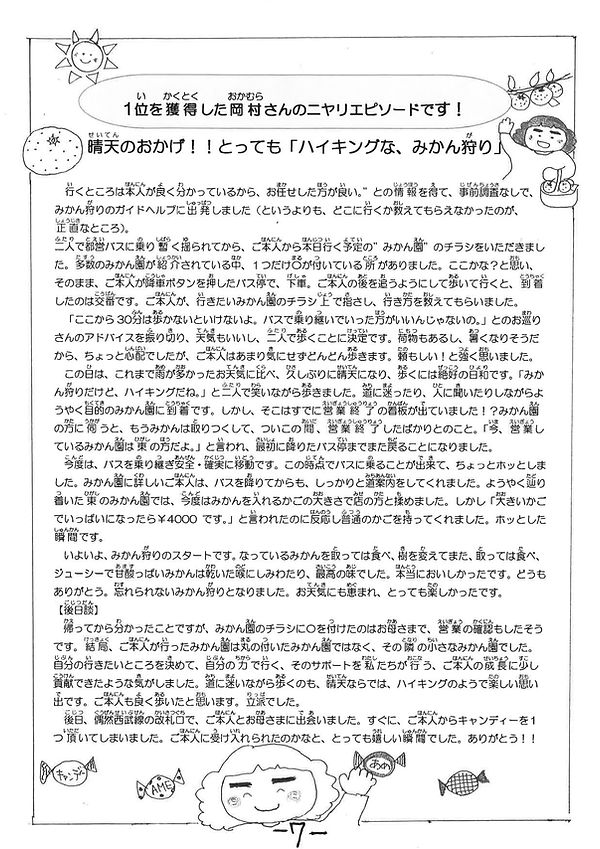 1位を獲得した岡村さんのニヤリエピソードです！
晴天のおかげ！！とっても「ハイキングな、みかん狩り」
行くところは本人が良く分かっているから、お任せした方が良い。”との情報を得て、事前調査なしで、
みかん狩りのガイドヘルプに出発しました（というよりも、どこに行くか教えてもらえなかったのが、
正直なところ）。
二人で都営バスに乗り暫く揺られてから、ご本人から本日行く予定の”みかん園”のチラシをいただきまし
た。多数のみかん園が紹介されている中、１つだけ〇が付いている所がありました。ここかな？と思い、
そのまま、ご本人が降車ボタンを押したバス停で、下車。ご本人の後を追うようにして歩いて行くと、到着
したのは交番です。ご本人が、行きたいみかん園のチラシ上で指さし、行き方を教えてもらいました。
「ここから30分は歩かないといけないよ。バスで乗り継いでいった方がいいんじゃないの。」とのお巡り
さんのアドバイスを振り切り、天気もいいし、二人で歩くことに決定です。荷物もあるし、暑くなりそうだ
から、ちょっと心配でしたが、ご本人はあまり気にせずどんどん歩きます。頼もしい！と強く思いました。
この日は、これまで雨が多かったお天気に比べ、久しぶりに晴天になり、歩くには絶好の日和です。「みか
ん狩りだけど、ハイキングだね。」と二人で笑いながら歩きました。道に迷ったり、人に聞いたりしながらよ
うやく目的のみかん園に到着です。しかし、そこはすでに営業終了の看板が出ていました！？みかん園
の方に伺うと、もうみかんは取りつくして、ついこの間、営業終了したばかりとのこと。「今、営業し
ているみかん園は東の方だよ。」と言われ、最初に降りたバス停までまた戻ることになりました。
今度は、バスを乗り継ぎ安全・確実に移動です。この時点でバスに乗ることが出来て、ちょっとホッとしま
した。みかん園に詳しいご本人は、バスを降りてからも、しっかりと道案内をしてくれました。ようやく辿り
着いた東のみかん園では、今度はみかんを入れるかごの大きさで店の方と揉めました。しかし「大きいかご
でいっぱいになったら￥4000 です。」と言われたのに反応し普通のかごを持ってくれました。ホッとした
瞬間です。
いよいよ、みかん狩りのスタートです。なっているみかんを取っては食べ、樹を変えてまた、取っては食べ、
ジューシーで甘酸っぱいみかんは乾いた喉にしみわたり、最高の味でした。本当においしかったです。どうも
ありがとう。忘れられないみかん狩りとなりました。お天気にも恵まれ、とっても楽しかったです。
【後日談】
帰ってから分かったことですが、みかん園のチラシに〇を付けたのはお母さまで、営業の確認もしたそう
です。結局、ご本人が行ったみかん園は丸の付いたみかん園ではなく、その隣の小さなみかん園でした。
自分の行きたいところを決めて、自分の力で行く、そのサポートを私たちが行う、ご本人の成長に少し
貢献できたような気がしました。道に迷いながら歩くのも、晴天ならでは、ハイキングのようで楽しい思い
出です。ご本人も良く歩いたと思います。立派でした。
後日、偶然西武線の改札口で、ご本人とお母さまに出会いました。すぐに、ご本人からキャンディーを１
つ頂いてしまいました。ご本人に受け入れられたのかなと、とっても嬉しい瞬間でした。ありがとう！！
キャンデー
AME
あめ
-7-